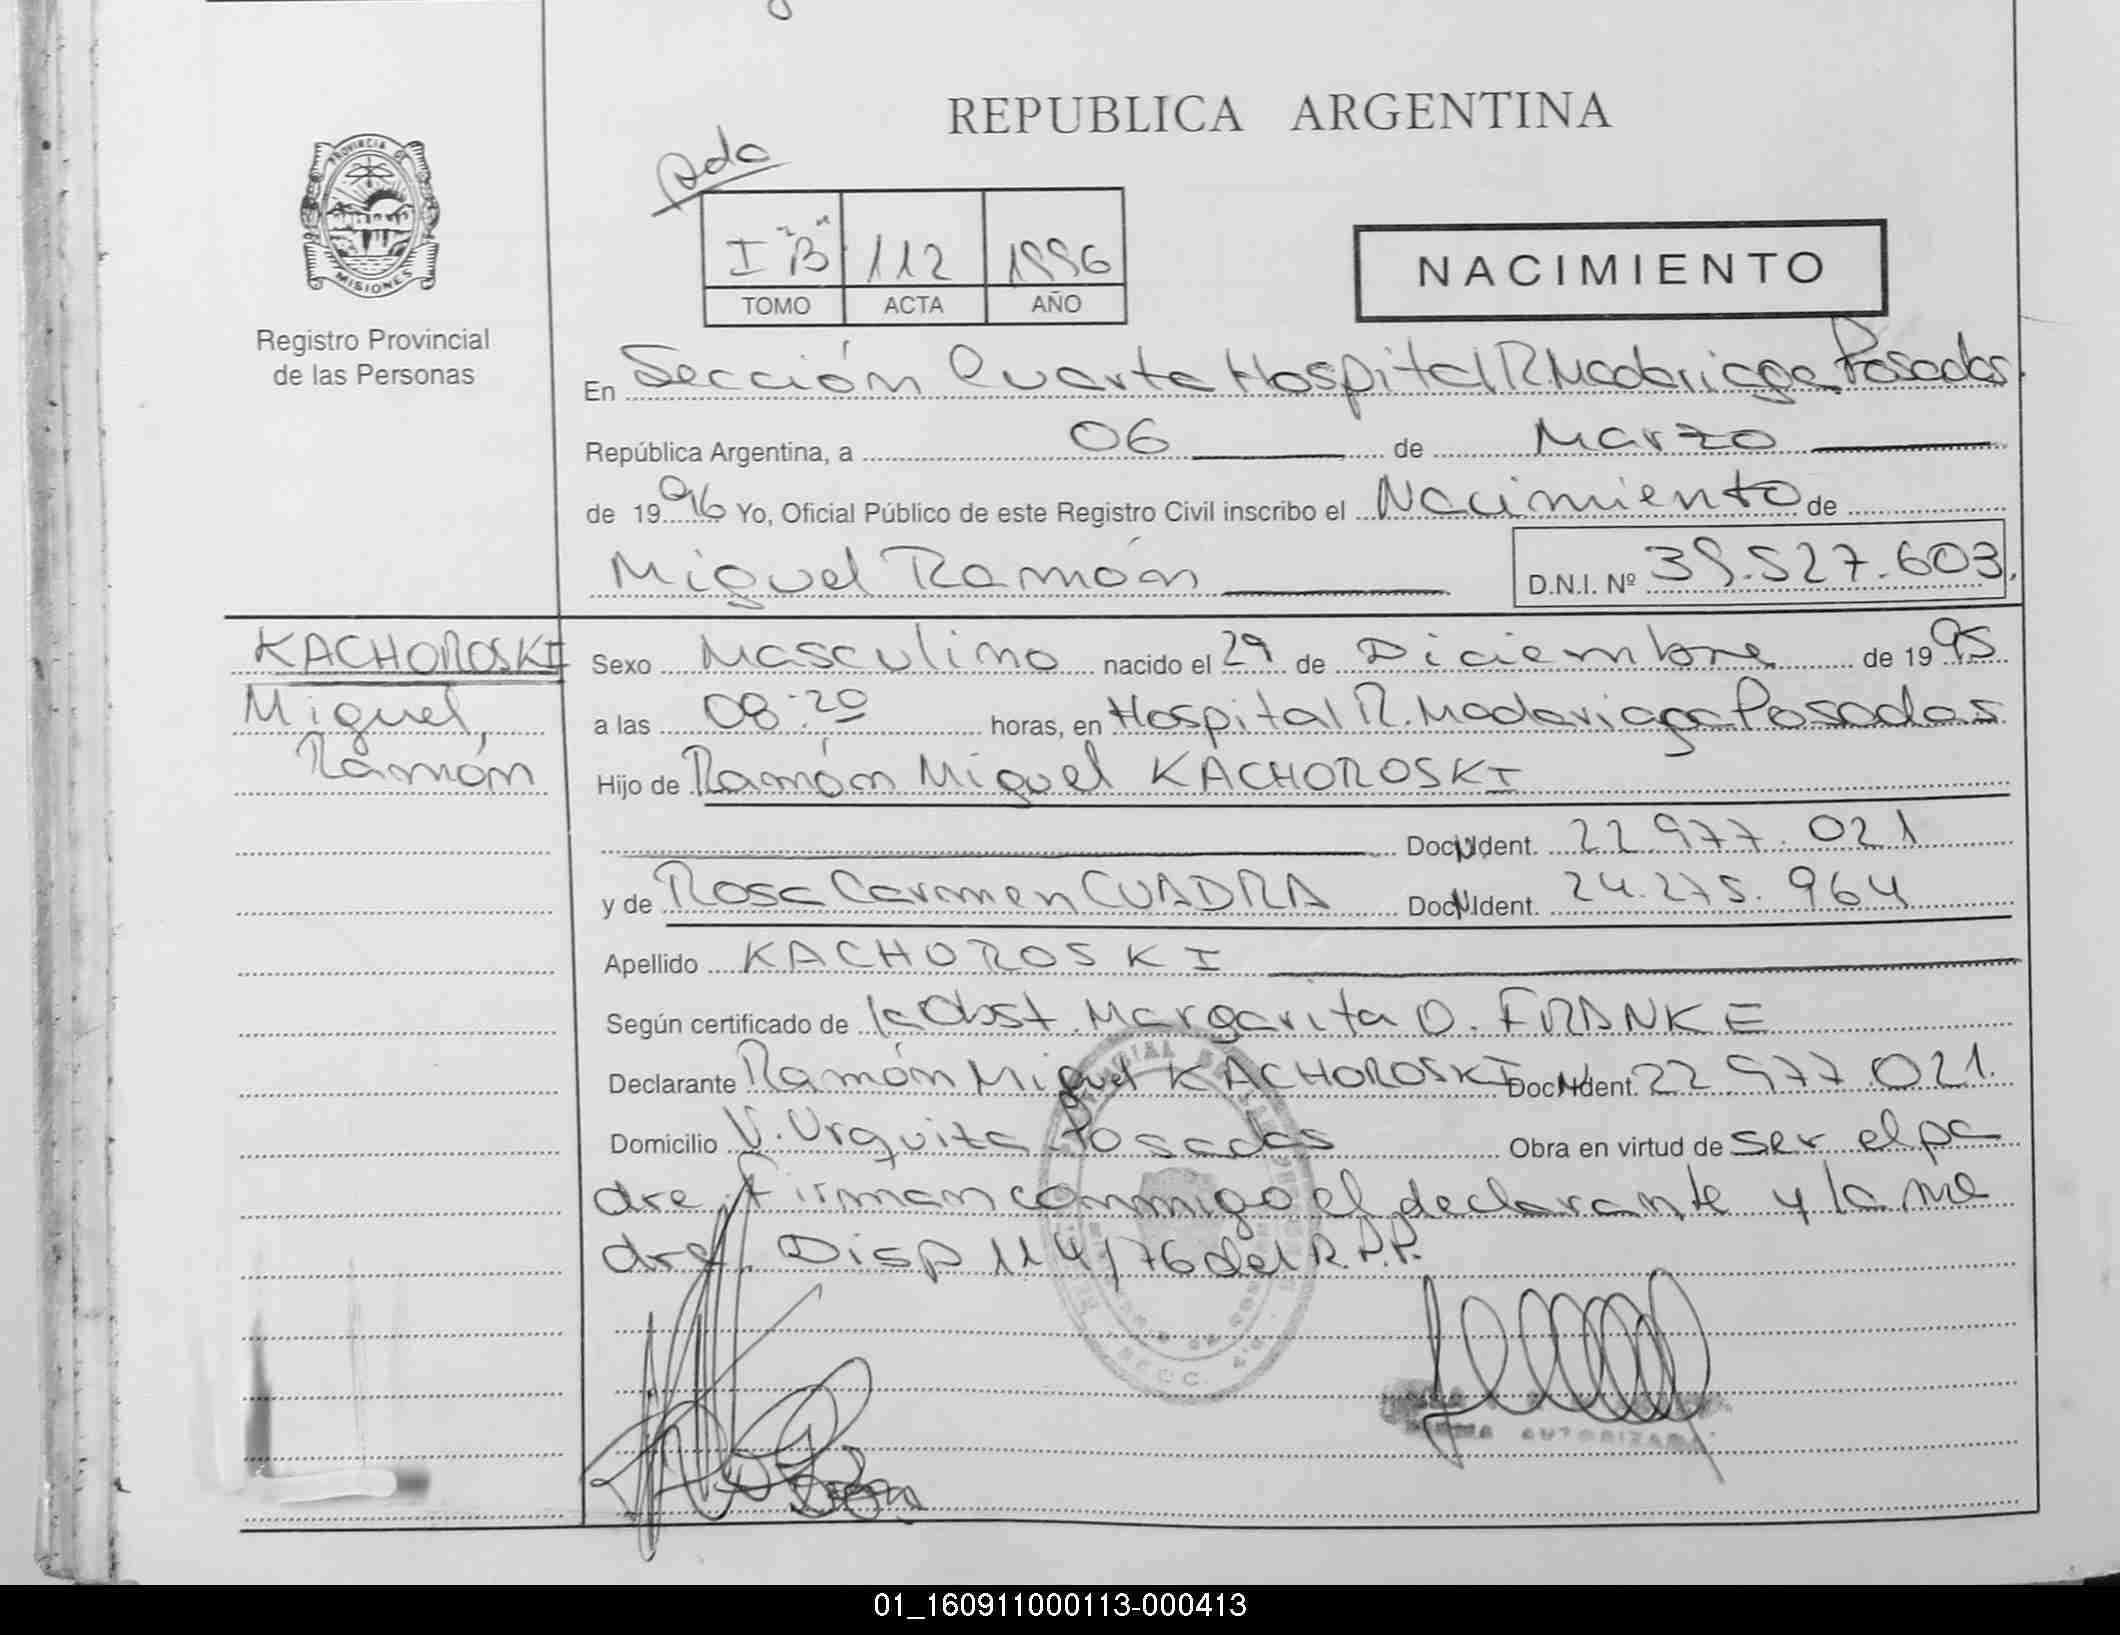 REPUBLICA ARGENTINA
PROVINCIA DE
MISIONES
Registro Provincial
de las Personas
I "B" 112 1996
TOMO ACTA AÑO
NACIMIENTO
En Sección Cuarta Hospital R. Madariaga Posadas
República Argentina, a 06 de Marzo
de 1996 Yo, Oficial Público de este Registro Civil inscribo el Nacimiento de
Miguel Ramón D.N.I. Nº 39.527.603
KACHOROSKI
Miguel,
Ramón
Sexo Masculino nacido el 29 de Diciembre de 1995
a las 08:20 horas, en Hospital R. Madariaga Posadas
Hijo de Ramón Miguel KACHOROSKI
Doc. Ident. 22.977.021
y de Rosa Carmen CUADRA Doc. Ident. 24.275.964
Apellido KACHOROSKI
Según certificado de la Obst. Margarita O. FRANKE
Declarante Ramón Miguel KACHOROSKI Doc. Ident. 22.977.021.
Domicilio V. Urquiza Posadas Obra en virtud de ser el pa
dre, firman conmigo el declarante y la ma
dre. Disp 114/76 del R.P.P.
FIRMA AUTORIZADA
01_160911000113-000413